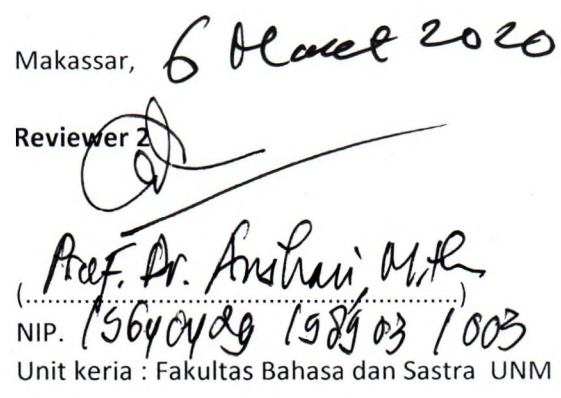 Makassar, 6 Maret 2020
Reviewer 2
Prof. Dr. Anshari, M.Hum
(........................................................)
NIP. 19640429 198903 1 003
Unit kerja : Fakultas Bahasa dan Sastra UNM